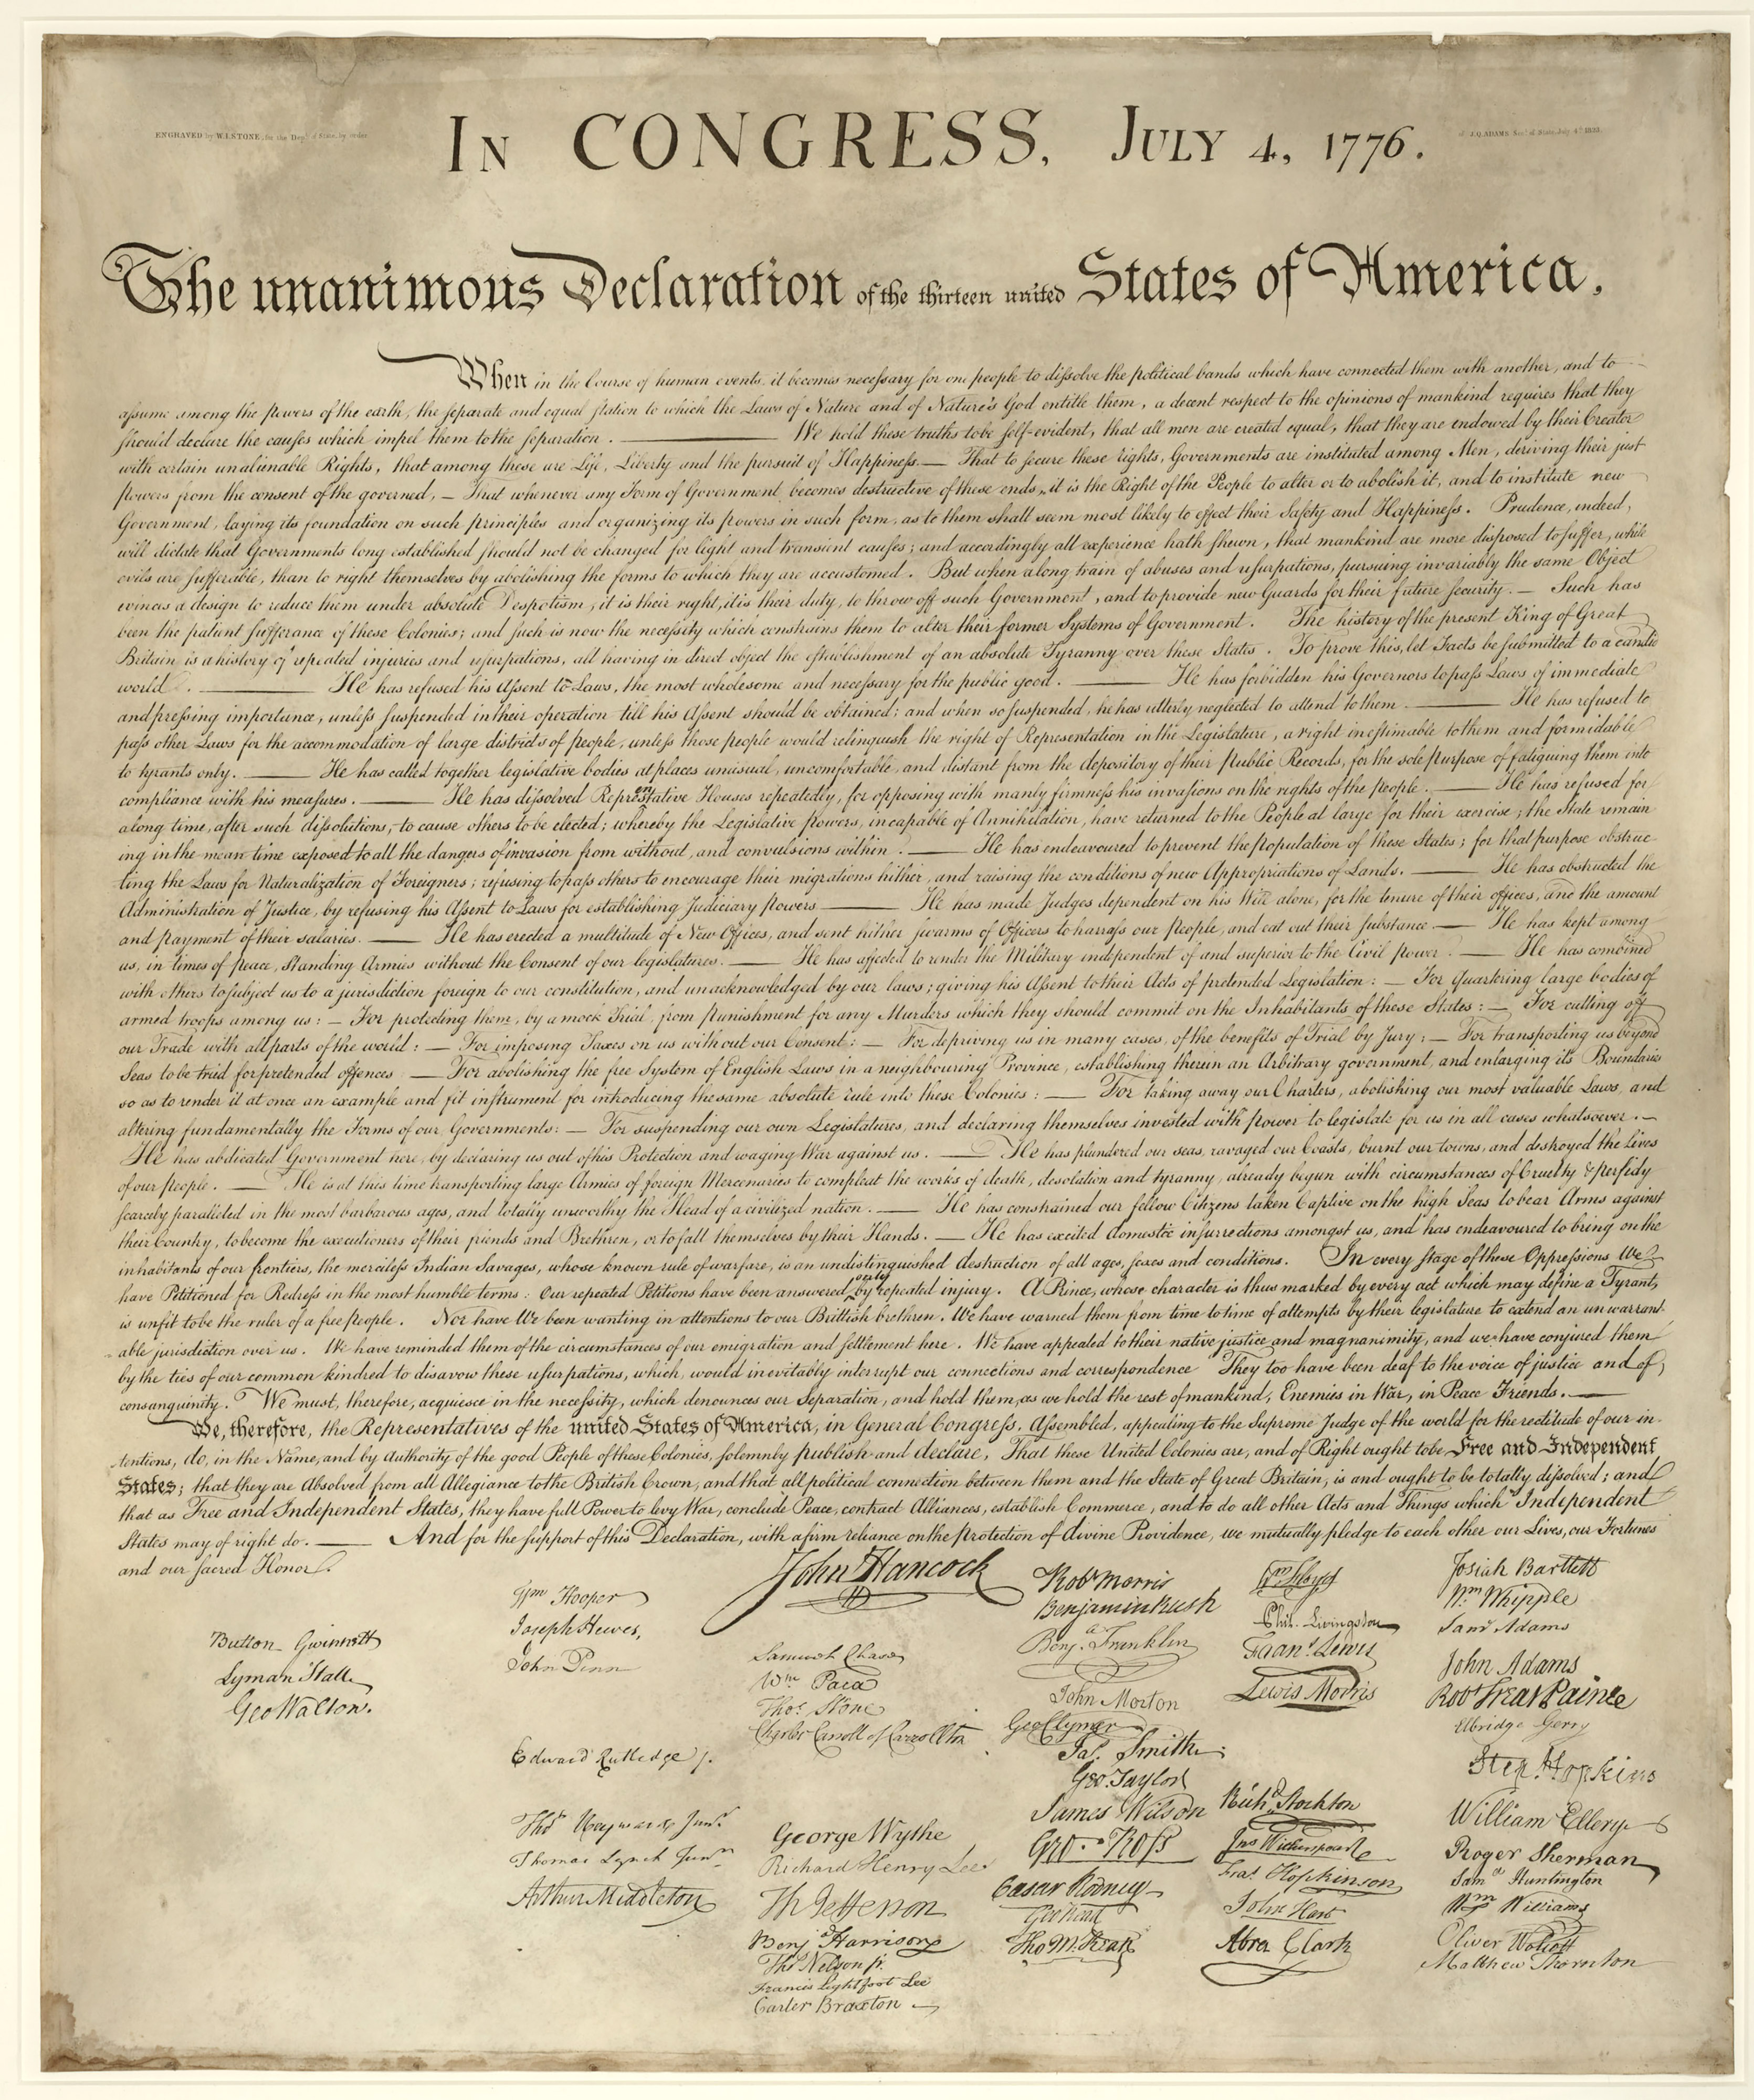 ENGRAVED by W.I.STONE, for the Dept. of State, by order
of J.Q.ADAMS Secy. of State, July 4th 1823.
IN CONGRESS, JULY 4, 1776.
The unanimous Declaration of the thirteen united States of America,
When in the Course of human events, it becomes necessary for one people to dissolve the political bands which have connected them with another, and to
assume among the powers of the earth, the separate and equal station to which the Laws of Nature and of Nature's God entitle them, a decent respect to the opinions of mankind requires that they
should declare the causes which impel them to the separation. — We hold these truths to be self-evident, that all men are created equal, that they are endowed by their Creator
with certain unalienable Rights, that among these are Life, Liberty and the pursuit of Happiness. — That to secure these rights, Governments are instituted among Men, deriving their just
powers from the consent of the governed, — That whenever any Form of Government becomes destructive of these ends, it is the Right of the People to alter or to abolish it, and to institute new
Government, laying its foundation on such principles and organizing its powers in such form, as to them shall seem most likely to effect their Safety and Happiness. Prudence, indeed,
will dictate that Governments long established should not be changed for light and transient causes; and accordingly all experience hath shewn, that mankind are more disposed to suffer, while
evils are sufferable, than to right themselves by abolishing the forms to which they are accustomed. But when a long train of abuses and usurpations, pursuing invariably the same Object
evinces a design to reduce them under absolute Despotism, it is their right, it is their duty, to throw off such Government, and to provide new Guards for their future security. — Such has
been the patient sufferance of these Colonies; and such is now the necessity which constrains them to alter their former Systems of Government. The history of the present King of Great
Britain is a history of repeated injuries and usurpations, all having in direct object the establishment of an absolute Tyranny over these States. To prove this, let Facts be submitted to a candid
world. — He has refused his Assent to Laws, the most wholesome and necessary for the public good. — He has forbidden his Governors to pass Laws of immediate
and pressing importance, unless suspended in their operation till his Assent should be obtained; and when so suspended, he has utterly neglected to attend to them. — He has refused to
pass other Laws for the accommodation of large districts of people, unless those people would relinquish the right of Representation in the Legislature, a right inestimable to them and formidable
to tyrants only. — He has called together legislative bodies at places unusual, uncomfortable, and distant from the depository of their Public Records, for the sole purpose of fatiguing them into
compliance with his measures. — He has dissolved Representative Houses repeatedly, for opposing with manly firmness his invasions on the rights of the people. — He has refused for
a long time, after such dissolutions, to cause others to be elected; whereby the Legislative powers, incapable of Annihilation, have returned to the People at large for their exercise; the State remain
ing in the mean time exposed to all the dangers of invasion from without, and convulsions within. — He has endeavoured to prevent the population of these States; for that purpose obstruc-
ting the Laws for Naturalization of Foreigners; refusing to pass others to encourage their migrations hither, and raising the conditions of new Appropriations of Lands. — He has obstructed the
Administration of Justice, by refusing his Assent to Laws for establishing Judiciary powers — He has made Judges dependent on his Will alone, for the tenure of their offices, and the amount
and payment of their salaries. — He has erected a multitude of New Offices, and sent hither swarms of Officers to harrass our people, and eat out their substance. — He has kept among
us, in times of peace, Standing Armies without the Consent of our legislatures. — He has affected to render the Military independent of and superior to the Civil power. — He has combined
with others to subject us to a jurisdiction foreign to our constitution, and unacknowledged by our laws; giving his Assent to their Acts of pretended Legislation: — For Quartering large bodies of
armed troops among us: — For protecting them, by a mock Trial, from punishment for any Murders which they should commit on the Inhabitants of these States: — For cutting off
our Trade with all parts of the world: — For imposing Taxes on us without our Consent: — For depriving us in many cases, of the benefits of Trial by Jury: — For transporting us beyond
Seas to be tried for pretended offences — For abolishing the free System of English Laws in a neighbouring Province, establishing therein an Arbitrary government, and enlarging its Boundaries
so as to render it at once an example and fit instrument for introducing the same absolute rule into these Colonies: — For taking away our Charters, abolishing our most valuable Laws, and
altering fundamentally the Forms of our Governments: — For suspending our own Legislatures, and declaring themselves invested with power to legislate for us in all cases whatsoever. —
He has abdicated Government here, by declaring us out of his Protection and waging War against us. — He has plundered our seas, ravaged our Coasts, burnt our towns, and destroyed the lives
of our people. — He is at this time transporting large Armies of foreign Mercenaries to compleat the works of death, desolation and tyranny, already begun with circumstances of Cruelty & perfidy
scarcely paralleled in the most barbarous ages, and totally unworthy the Head of a civilized nation. — He has constrained our fellow Citizens taken Captive on the high Seas to bear Arms against
their Country, to become the executioners of their friends and Brethren, or to fall themselves by their Hands. — He has excited domestic insurrections amongst us, and has endeavoured to bring on the
inhabitants of our frontiers, the merciless Indian Savages, whose known rule of warfare, is an undistinguished destruction of all ages, sexes and conditions. In every stage of these Oppressions We
have Petitioned for Redress in the most humble terms: Our repeated Petitions have been answered only by repeated injury. A Prince, whose character is thus marked by every act which may define a Tyrant,
is unfit to be the ruler of a free people. Nor have We been wanting in attentions to our Brittish brethren. We have warned them from time to time of attempts by their legislature to extend an unwarrant-
able jurisdiction over us. We have reminded them of the circumstances of our emigration and settlement here. We have appealed to their native justice and magnanimity, and we have conjured them
by the ties of our common kindred to disavow these usurpations, which, would inevitably interrupt our connections and correspondence They too have been deaf to the voice of justice and of
consanguinity. We must, therefore, acquiesce in the necessity, which denounces our Separation, and hold them, as we hold the rest of mankind, Enemies in War, in Peace Friends. —
We, therefore, the Representatives of the united States of America, in General Congress, Assembled, appealing to the Supreme Judge of the world for the rectitude of our in-
tentions, do, in the Name, and by Authority of the good People of these Colonies, solemnly publish and declare, That these United Colonies are, and of Right ought to be Free and Independent
States; that they are Absolved from all Allegiance to the British Crown, and that all political connection between them and the State of Great Britain, is and ought to be totally dissolved; and
that as Free and Independent States, they have full Power to levy War, conclude Peace, contract Alliances, establish Commerce, and to do all other Acts and Things which Independent
States may of right do. — And for the support of this Declaration, with a firm reliance on the protection of divine Providence, we mutually pledge to each other our Lives, our Fortunes
and our sacred Honor.
Button Gwinnett
Lyman Hall
Geo Walton.
Wm Hooper
Joseph Hewes,
John Penn
Edward Rutledge /.
Thos Heyward Junr.
Thomas Lynch Junr.
Arthur Middleton
John Hancock
Samuel Chase
Wm. Paca
Thos. Stone
Charles Carroll of Carrollton
George Wythe
Richard Henry Lee
Th Jefferson
Benj Harrison
Thos Nelson jr.
Francis Lightfoot Lee
Carter Braxton
Robt Morris
Benjamin Rush
Benj. Franklin
John Morton
Geo Clymer
Jas. Smith.
Geo. Taylor
James Wilson
Geo. Ross
Caesar Rodney
Geo Read
Tho M:Kean
Wm Floyd
Phil. Livingston
Frans. Lewis
Lewis Morris
Richd. Stockton
Jno Witherspoon
Fras. Hopkinson
John Hart
Abra Clark
Josiah Bartlett
Wm: Whipple
Saml Adams
John Adams
Robt Treat Paine
Elbridge Gerry
Step. Hopkins
William Ellery
Roger Sherman
Samel Huntington
Wm Williams
Oliver Wolcott
Matthew Thornton